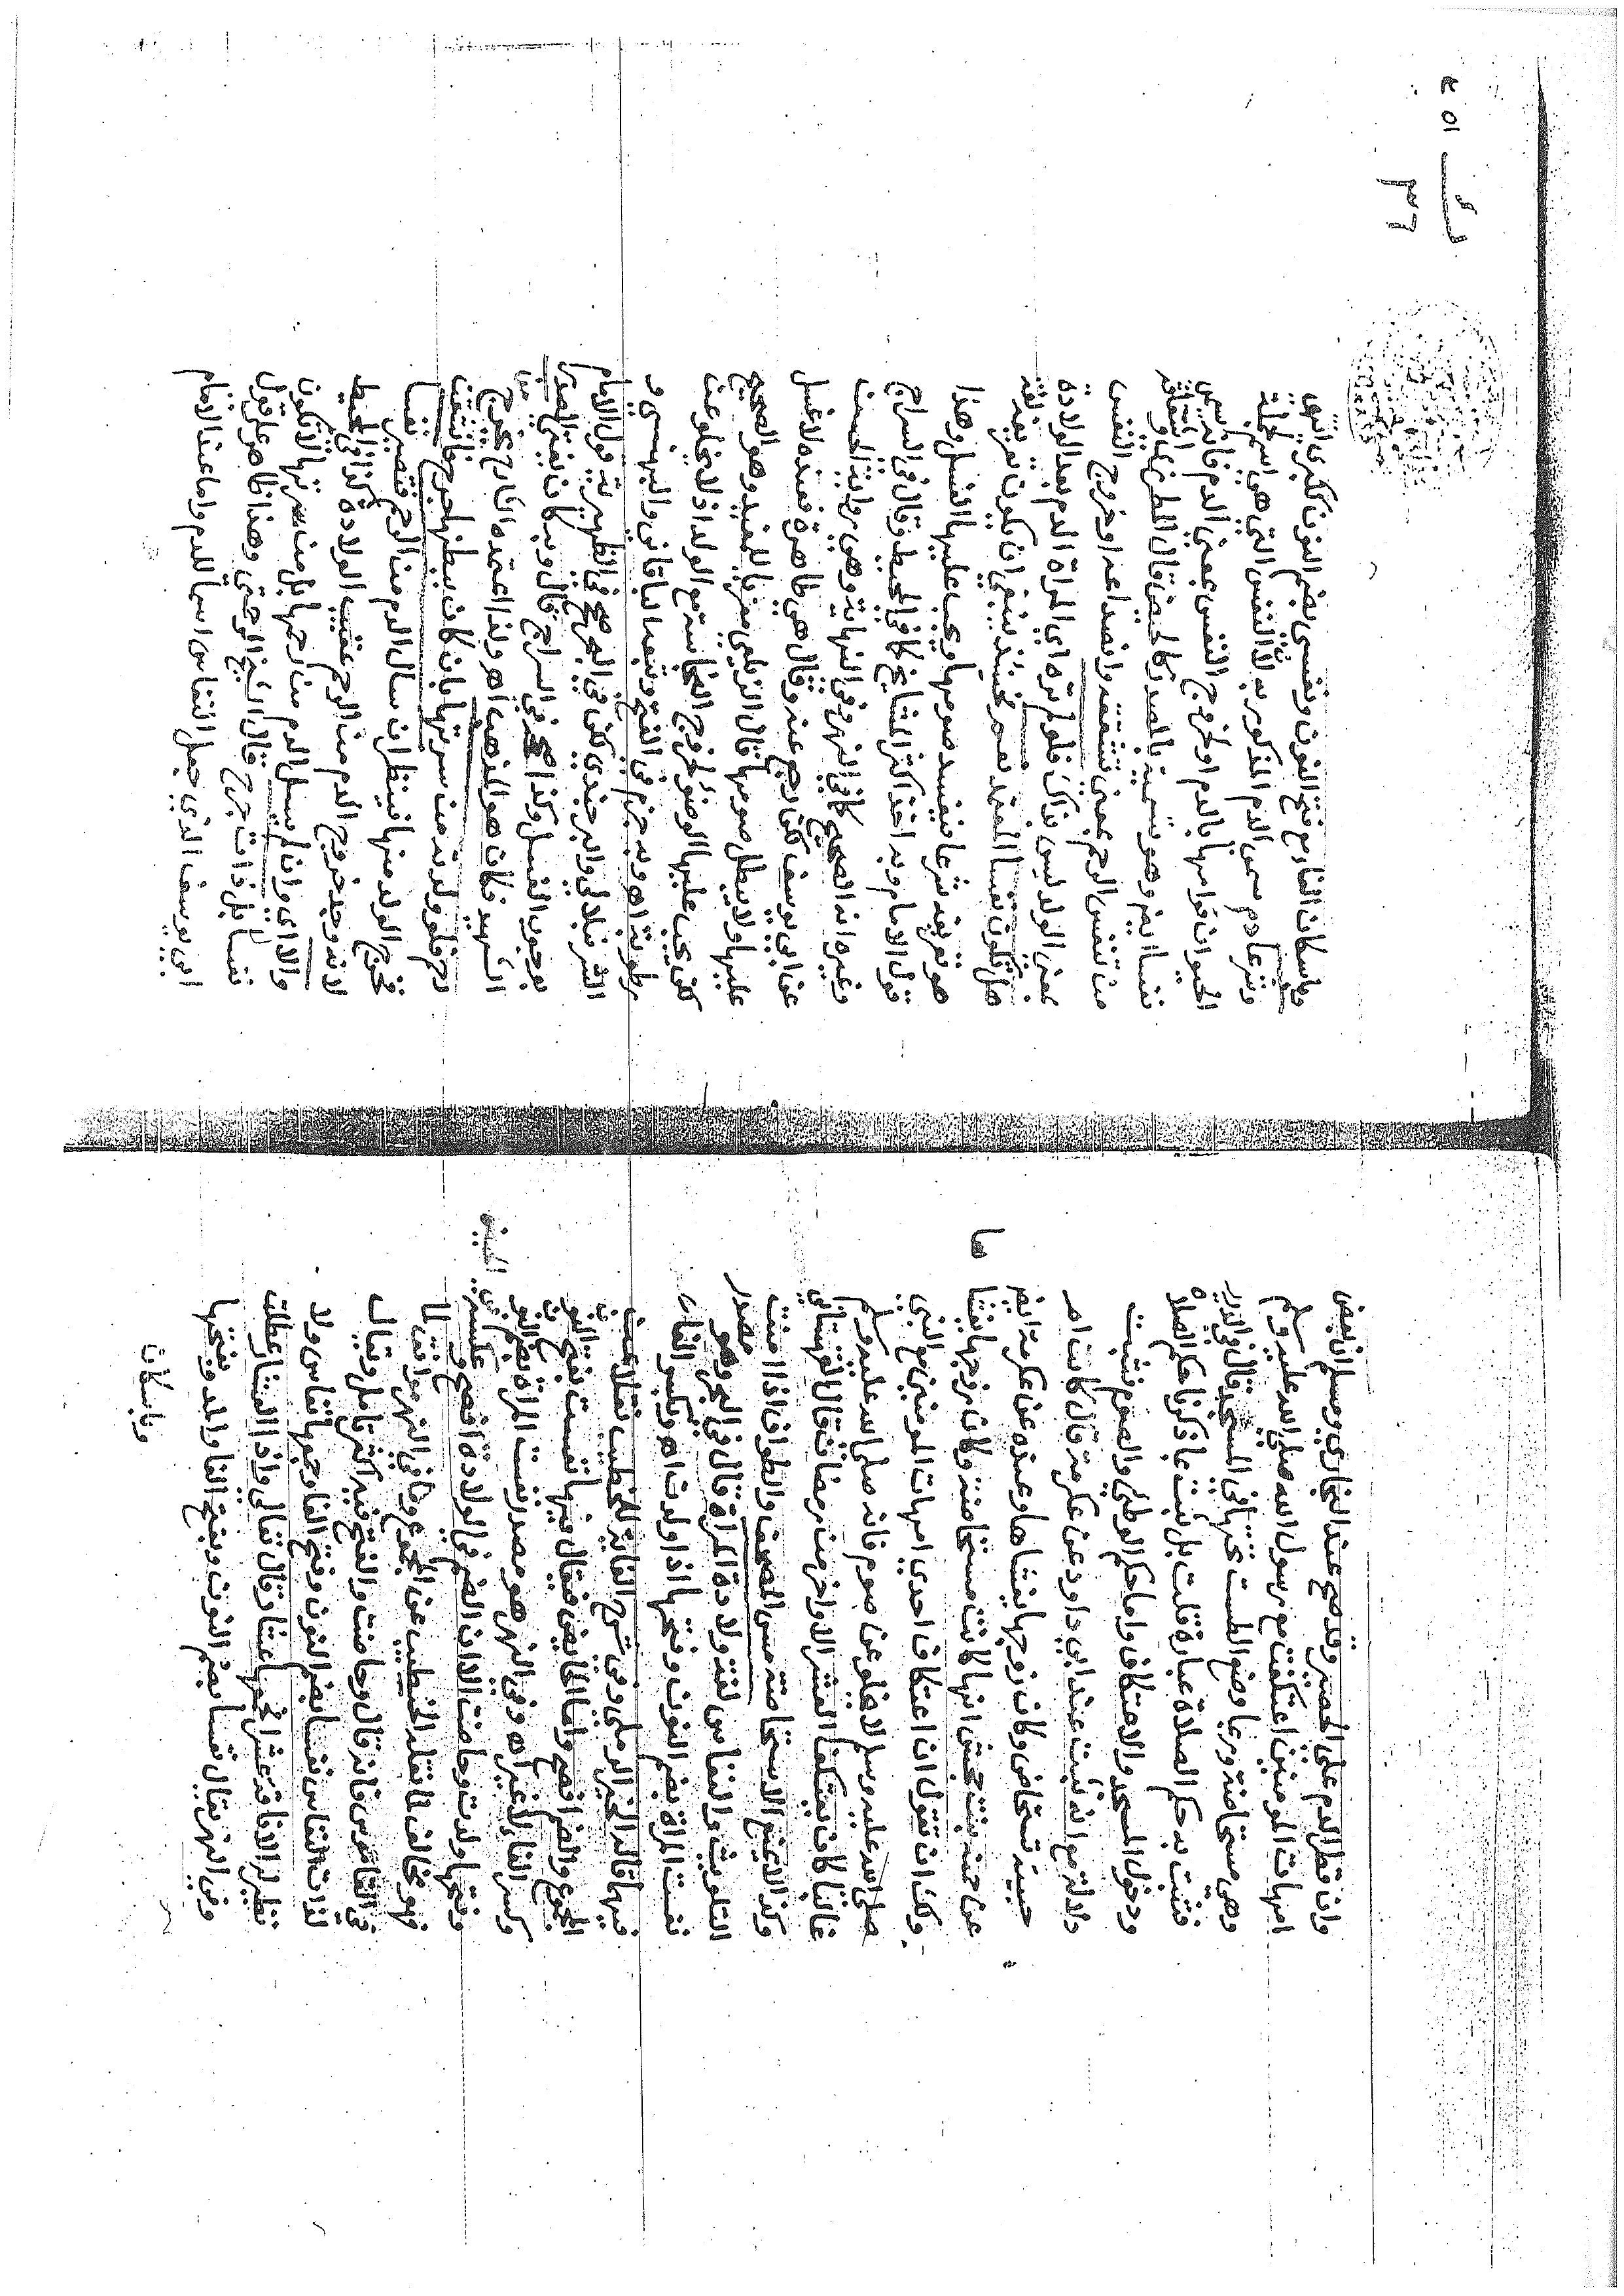 وان قطر الدم على الحصير وقد صح عند البخاري ومسلم ان بعض
امهات المومنين اعتكفت مع رسول الله صلى الله عليه وسلم
وهي مستحاضة وربما وضع الطست تحتها في المسجد قال في الدرر
فثبت به حكم الصلاة عبارة قلت بل ثبت بما ذكرنا حكم الصلاة
ودخول المسجد والاعتكاف واما حكم الوطئ والصوم فثبت
دلالة مع انه ثبت عند ابي داود عن عكرمة قال كانت ام
حبيبة تستحاض وكان زوجها يغشاها وعنده عن عكرمة ايضا
عن حمنة بنت جحش انها كانت مستحاضة وكان زوجها يغشاها
ولك ان تقول ان اعتكاف احدي امهات المومنين مع النبي
صلى الله عليه وسلم لا يخلو عن صوم فانه صلى الله عليه وسلم
غالبا كان يعتكف العشر الاواخر من رمضان قال القهستاني
وكذا لا يمنع الاستحاضة مس المصحف والطواف اذا امنت
التلويث والنفاس لغة ولادة المراة قال في البحر وهو مصدر
نفست المراة بضم النون وفتحها اذا ولدت اه وبكسر الفاء
فيهما قاله الخير الرملي وفي شرح الغاية للخطيب نقلا عن
المجموع والضم افصح واما الحايض فيقال فيها نفست بفتح النون
وكسر الفا لا غير اه وفي النهر هو مصدر نفست المراة بضم النون
وفتحها ولدت وحاضت الا ان الضم في الولادة افصح وعكسه في الحيض
فهو مخالف لما نقله الخطيب عن المجموع وما في النهر موافق لما
في القاموس فانه قال وحاضت والفتح فيه اكثر تامل ويقال
لذات النفاس نفسا بضم النون وفتح الفا وجمعها نفاس ولا
نظير له الا ناقة عشرا فجمعها عشار قال تعالى واذا العشار عطلت
وفي النهر يقال نفسا بضم النون وبفتح الفا والمد وبفتحها
وباسكان
وباسكان الفا مع فتح النون ونفسى بضم النون ككبرى
وشرعا دم سمى الدم المذكور به لان النفس التي هي اسم لجملة
الحيوان قوامها بالدم او لخروج النفس بمعنى الدم
نفسا ايضا وهو تسمية بالمصدر كالحيض قال المطرزي
من تنفس الرحم بمعنى تشققه وانصداعه او خروج النفس
بمعنى الولد ليس بذاك فلو لم تره اي المراة الدم بعد الولادة
هل تكون نفسا المعتمد نعم فحينئذ ينبغي ان يكون تعريفه لغة
هو تعريفه شرعا فيفسد صومها ويجب عليها الغسل وهذا
قول الامام وبه اخذ اكثر المشايخ كما في المحيط وقال في السراج
وغيره انه الصحيح كما في النهر وفي النهاية وهي رواية الحسن
عن ابي يوسف لكن رجع عنه وقال هي طاهرة فعنده لا غسل
عليها ولا يبطل صومها قال الزيلعي معزيا للمفيد وهو الصحيح
لكن يجب عليها الوضوء لخروج النجاسة مع الولد اذ لا يخلو عن
رطوبة اه وبه جزم في الفتح وتبعه الباقاني والبهنسي و
الشرنبلالي والبرجندي لكن في البحر صحح في الظهيرية قول الامام
بوجوب الغسل وكذا صححه في السراج قال وبه كان يفتي الصدر
الشهيد فكان هو المذهب اه ولذا اعتمده الشارح
رحم فلو ولدته من سرتها بان كان ببطنها جرح فانشقت
فخرج الولد منها فينظر ان سال الدم من الرحم فتصير نفسا
لانه وجد خروج الدم من الرحم عقيب الولادة كذا في المحيط
والا اي وان لم يسل الدم من رحمها بل من سرتها لا تكون
نفسا بل ذات جرح قال الشيخ الرحمتي وهذا ظاهر على قول
ابي يوسف الذي جعل النفاس اسما للدم واما عند الامام